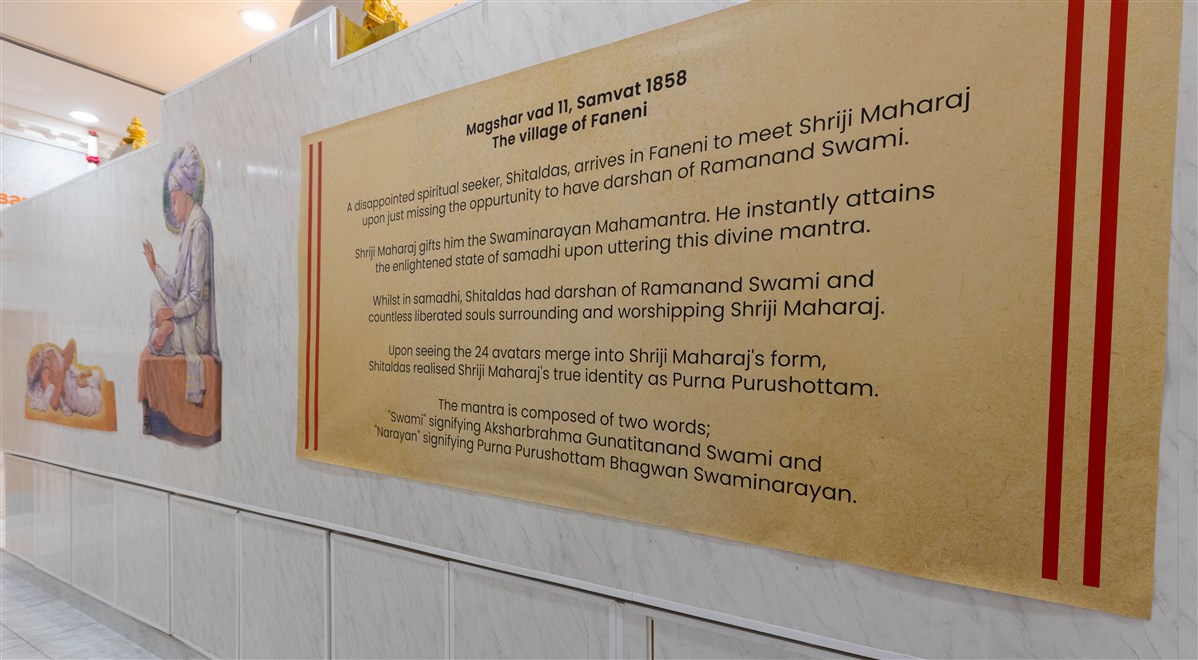 Magshar vad 11, Samvat 1858
The village of Faneni
A disappointed spiritual seeker, Shitaldas, arrives in Faneni to meet Shriji Maharaj
upon just missing the oppurtunity to have darshan of Ramanand Swami.
Shriji Maharaj gifts him the Swaminarayan Mahamantra. He instantly attains
the enlightened state of samadhi upon uttering this divine mantra.
Whilst in samadhi, Shitaldas had darshan of Ramanand Swami and
countless liberated souls surrounding and worshipping Shriji Maharaj.
Upon seeing the 24 avatars merge into Shriji Maharaj's form,
Shitaldas realised Shriji Maharaj's true identity as Purna Purushottam.
The mantra is composed of two words;
"Swami" signifying Aksharbrahma Gunatitanand Swami and
"Narayan" signifying Purna Purushottam Bhagwan Swaminarayan.